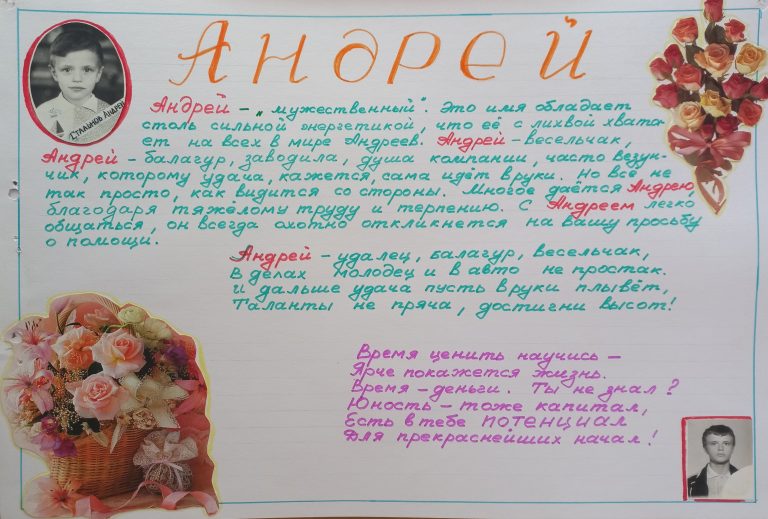 Андрей
Стальнов Андрей
Андрей – „мужественный". Это имя обладает
столь сильной энергетикой, что её с лихвой хвата-
ет на всех в мире Андреев. Андрей – весельчак,
Андрей – балагур, заводила, душа компании, часто везун-
чик, которому удача, кажется, сама идёт в руки. Но всё не
так просто, как видится со стороны. Многое даётся Андрею,
благодаря тяжёлому труду и терпению. С Андреем легко
общаться, он всегда охотно откликнется на Вашу просьбу
о помощи.
Андрей – удалец, балагур, весельчак,
В делах молодец и в авто не простак.
И дальше удача пусть в руки плывёт,
Таланты не пряча, достигни высот!
Время ценить научись –
Ярче покажется жизнь.
Время – деньги. Ты не знал?
Юность – тоже капитал,
Есть в тебе ПОТЕНЦИАЛ
Для прекраснейших начал!